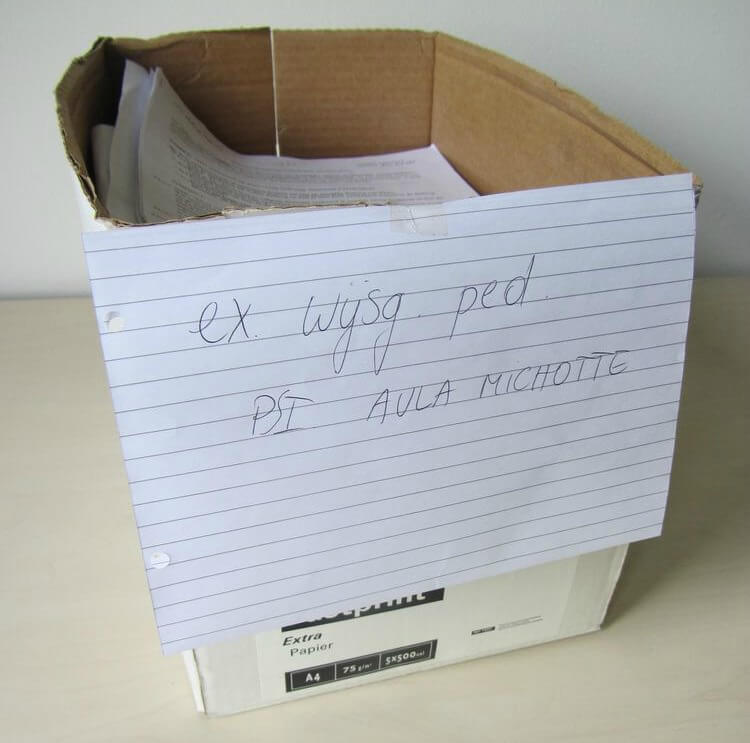 ex. wijsg. ped.
PSI AULA MICHOTTE
Extra
Papier
A4 75 g/m² 5x500